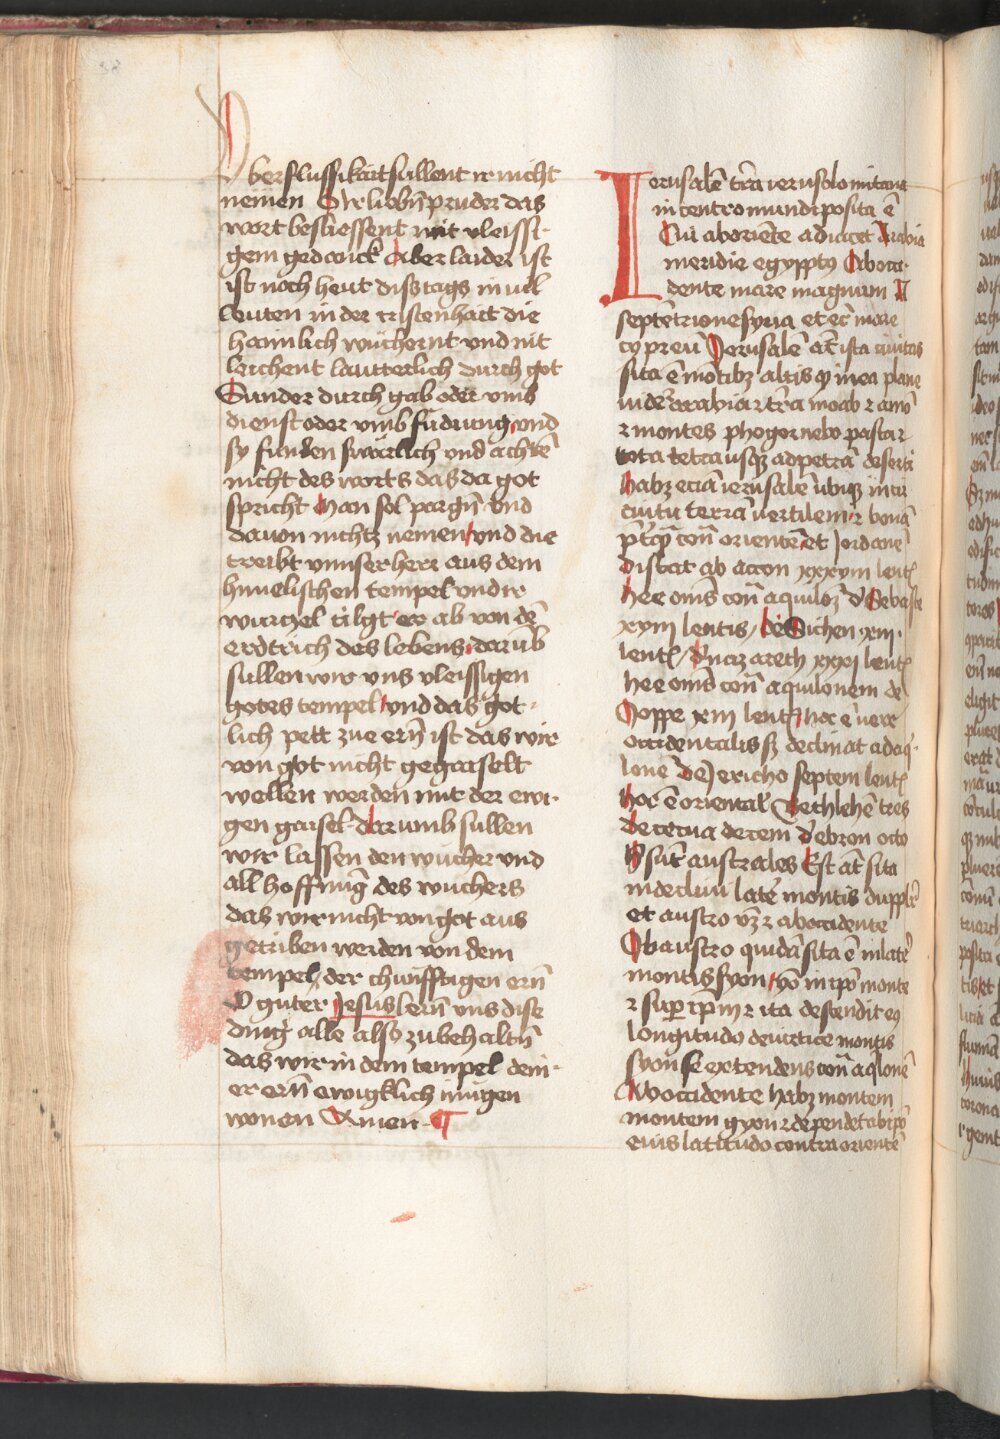 Vberflussikait sullent ir nicht
nemen Ir liebn̄ pruder das
wort besliessent mit vleissi-
gem gedanck Aber laider ist
ist noch heut diss tags in vil
Leuten in der cristenhait die
haimlich wuchernt vnd nit
leichent lautterlich durch got
Sunder durch gab oder vmb
dienst oder vmb fudrung vnd
sy funden swärlich vnd achtē
nicht des worts das da got
spricht Man sol pargn̄ vnd
dauon nichtz nemen vnd die
treibt vnnser herr aus dem
himelischen tempel vnd ir
wurczel tilgt er ab von dē
erdtrich des lebens darūb
sullen wir vns vleissigen
gotes tempel vnd das got-
lich pett zue ern̄ ist das wir
von got nicht gegaiselt
wellen werden mit der ewi-
gen gaisel darumb sullen
wir lassen den wucher vnd
all hoffnūg des wuchers
das wir nicht von got aus
getriben werden von dem
tempel der chunfftigen ern̄
O guter Jesus lern̄ vns dise
ding alle also zubehaltn̄
das wir in dem tempel dein-
er ern̄ ewigklich mugen
wonen Amen
Ierusalē t̄ra ierusolomitana
in centro mundi posita ē
Cui ab oriēte adiacet Arabia
meridie egyppt9 Ab occi-
dente mare magnum A
septētrione syria et et̄ mare
cypreū Jerusalē at̄ ista ciuitas
sita ē mōtibz altis
inde arabia t̄ra moab z amō
z montes phogor nebo
tota usqz ad petrā deserti
habz etiā ierusalē ubiqz in cir
cuitu terrā uertilem z bonā
con̄ orientē et Jordanē
distat ab accon xxxvm leut̄
hee om̄s con̄ de Sebaste
xvm leutis de Sichen xm
leut̄ nazareth xxxj leut̄
hee om̄s con̄ aquilonem de
Joppe xm leut̄ hoc ē uere
occidentalis sz declinat ad aq-
lonē de Jericho septem leut̄
hoc ē oriental̄ Bethlehē tres
decem d'ebron octo
sūt australes Est at̄ sita
in decliui latē montis dupplr̄
et austro z ab occidente
Ab austro quidā sita ē in latē
montis syon in ip̄o monte
z suꝑ ip̄m z ita descendit
longitudo de uertice montis
syon se extendens con̄ aqlonē
Ab occidente habz montem
montem gyon z dependet ab ip̄o
eius latitudo contra orientē